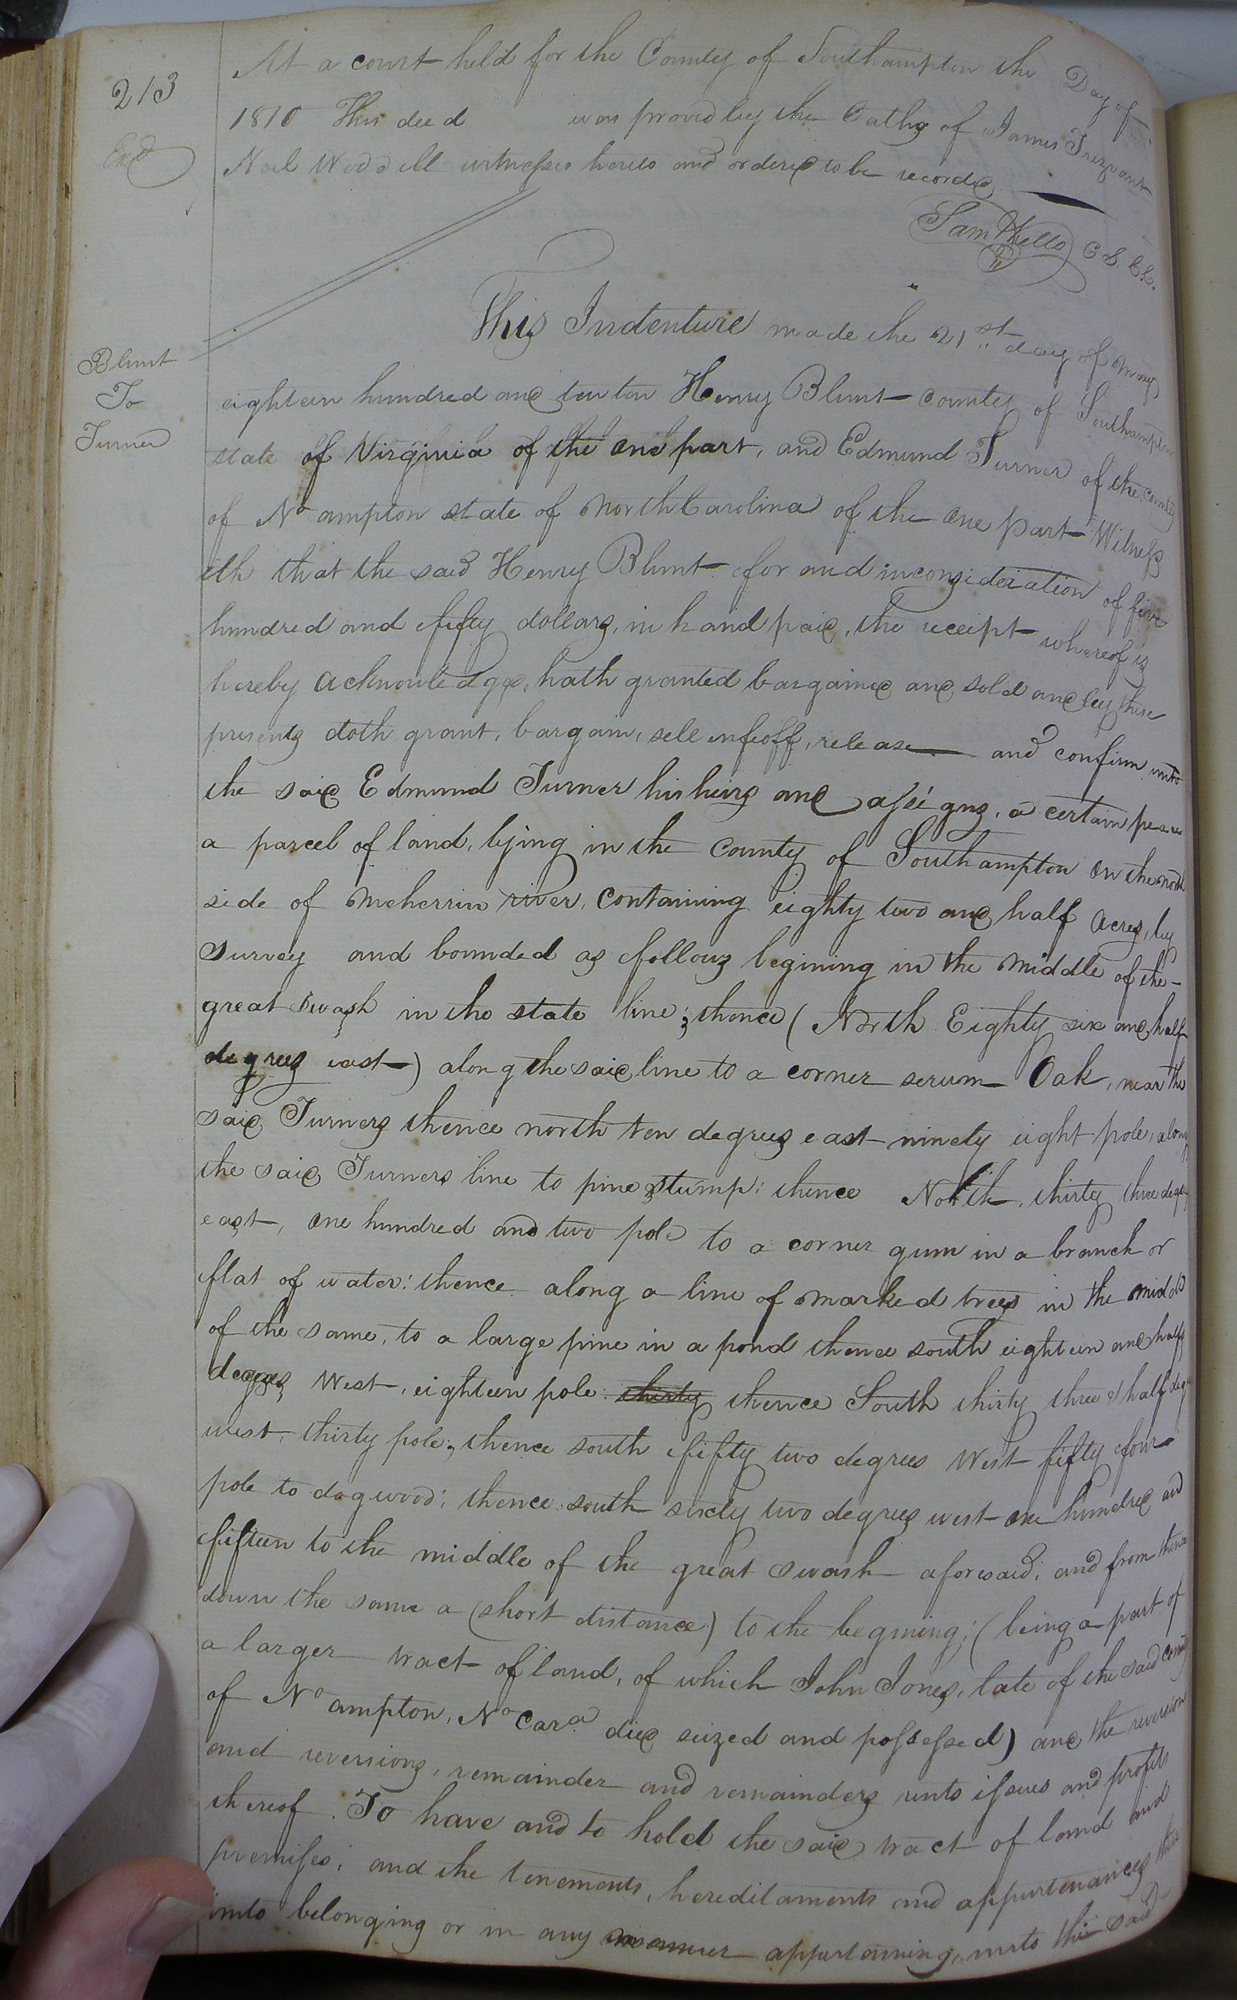 213
Exd
At a court held for the County of Southampton the Day of
1810 This deed was proved by the Oaths of James Trezvant
Neil Weddell witnesses hereto and ordered to be recorded
Sam Kello C.S.C.C.
Blunt
To
Turner
This Indenture made the 21st day of May
eighteen hundred and ten Henry Blunt county of Southampton
state of Virginia of the one part, and Edmund Turner of the county
of No ampton state of North Carolina of the one part Witness
eth that the said Henry Blunt for and in consideration of five
hundred and fifty dollars, in hand paid, the receipt whereof is
hereby acknowledged, hath granted bargained and sold and by these
presents doth grant, bargain, sell enfeoff, release and confirm unto
the said Edmund Turner his heirs and assigns, a certain
a parcel of land, lying in the county of Southampton on the north
side of meherrin river, containing eighty two and half acres, by
survey and bounded as follows begining in the middle of the
great swash in the state line; thence (North Eighty six and half
degrees east) along the said line to a corner Oak, near the
said Turners thence north ten degrees east ninety eight pole, along
the said Turners line to pine stump: thence North, thirty three degs
east, one hundred and two pole to a corner gum in a branch or
flat of water: thence along a line of marked trees in the middle
of the same, to a large pine in a pond thence south eighteen and half
degrees West, eighteen pole thirty thence South thirty three & half deg
west, thirty pole; thence south fifty two degrees West fifty four
pole to dogwood; thence south sixty two degrees west one hundred and
fifteen to the middle of the great swash aforesaid; and from thence
down the same a (short distance) to the begining; (being a part of
a larger tract of land, of which John Jones, late of the said county
of No ampton, No Cara died seized and possessed) and the reversion
and reversions, remainder and remainders issues and profits
thereof. To have and to hold the said tract of land and
premises, and the tenements, hereditaments and appurtenances there
unto belonging or in any manner appertaining, unto the said